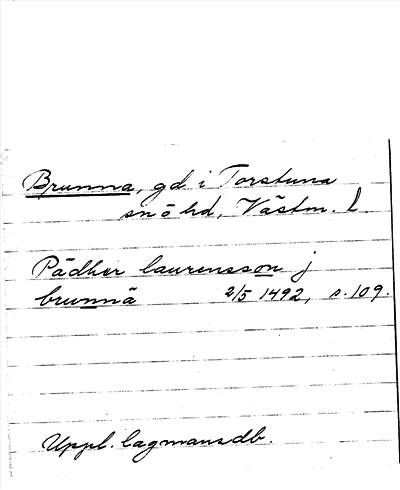 Brunna, gd i Torstuna
sn o hd, Västm. l.
Pädher laurensson j
brunnä 2/5 1492, s. 109.
Uppl. lagmansdb.